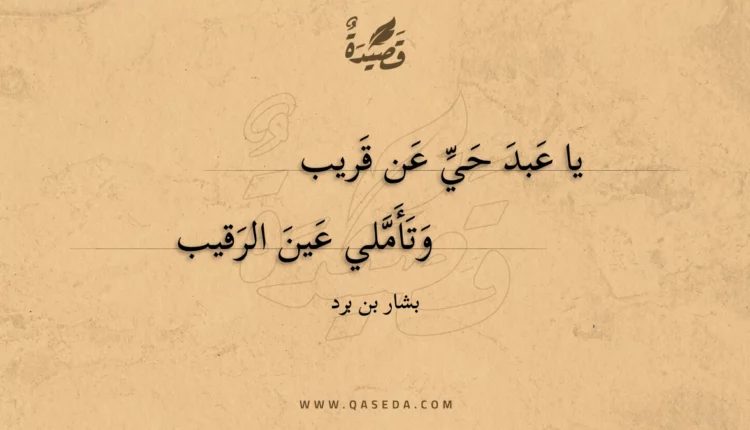 قَصِيْدَةٌ
يا عَبدَ حَيِّ عَن قَريب
وَتَأَمَّلي عَينَ الرَقيب
بشار بن برد
WWW.QASEDA.COM